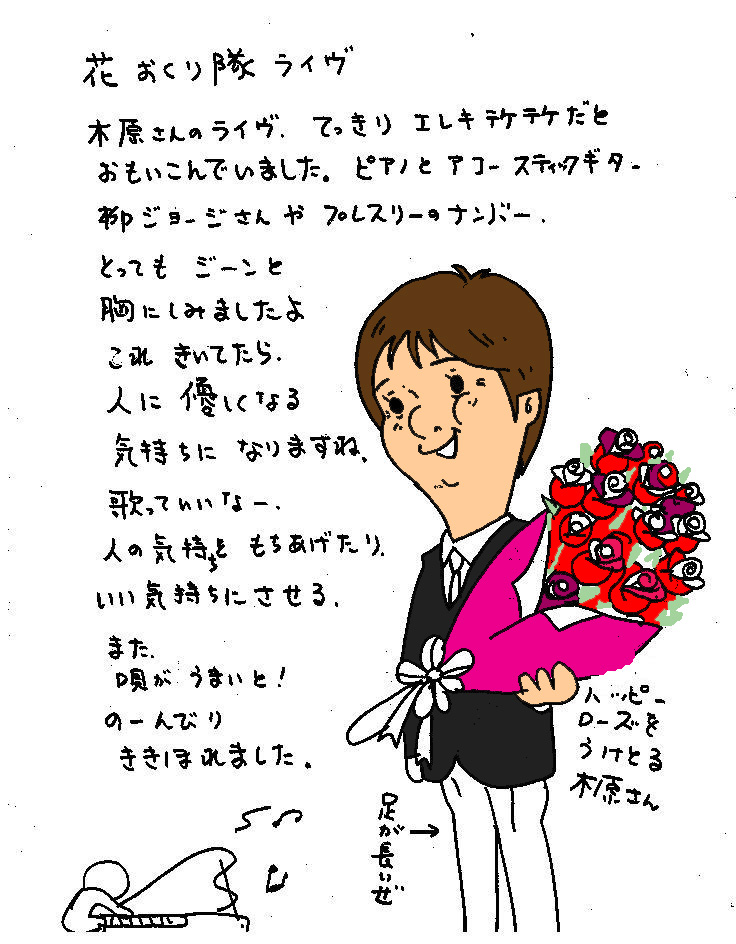 花 おくり隊 ライヴ
木原さんのライヴ. てっきり エレキテケテケだと
おもいこんでいました。ピアノと アコースティックギター
柳ジョージさんや プレスリーのナンバー.
とっても ジーンと
胸にしみましたよ
これ きいてたら.
人に 優しくなる
気持ちに なりますね、
歌っていいなー.
人の気持ちを もちあげたり、
いい気持ちにさせる.
また.
唄が うまいと!
のーんびり
ききほれました。
ハッピー
ローズを
うけとる
木原さん
足が長いぜ→